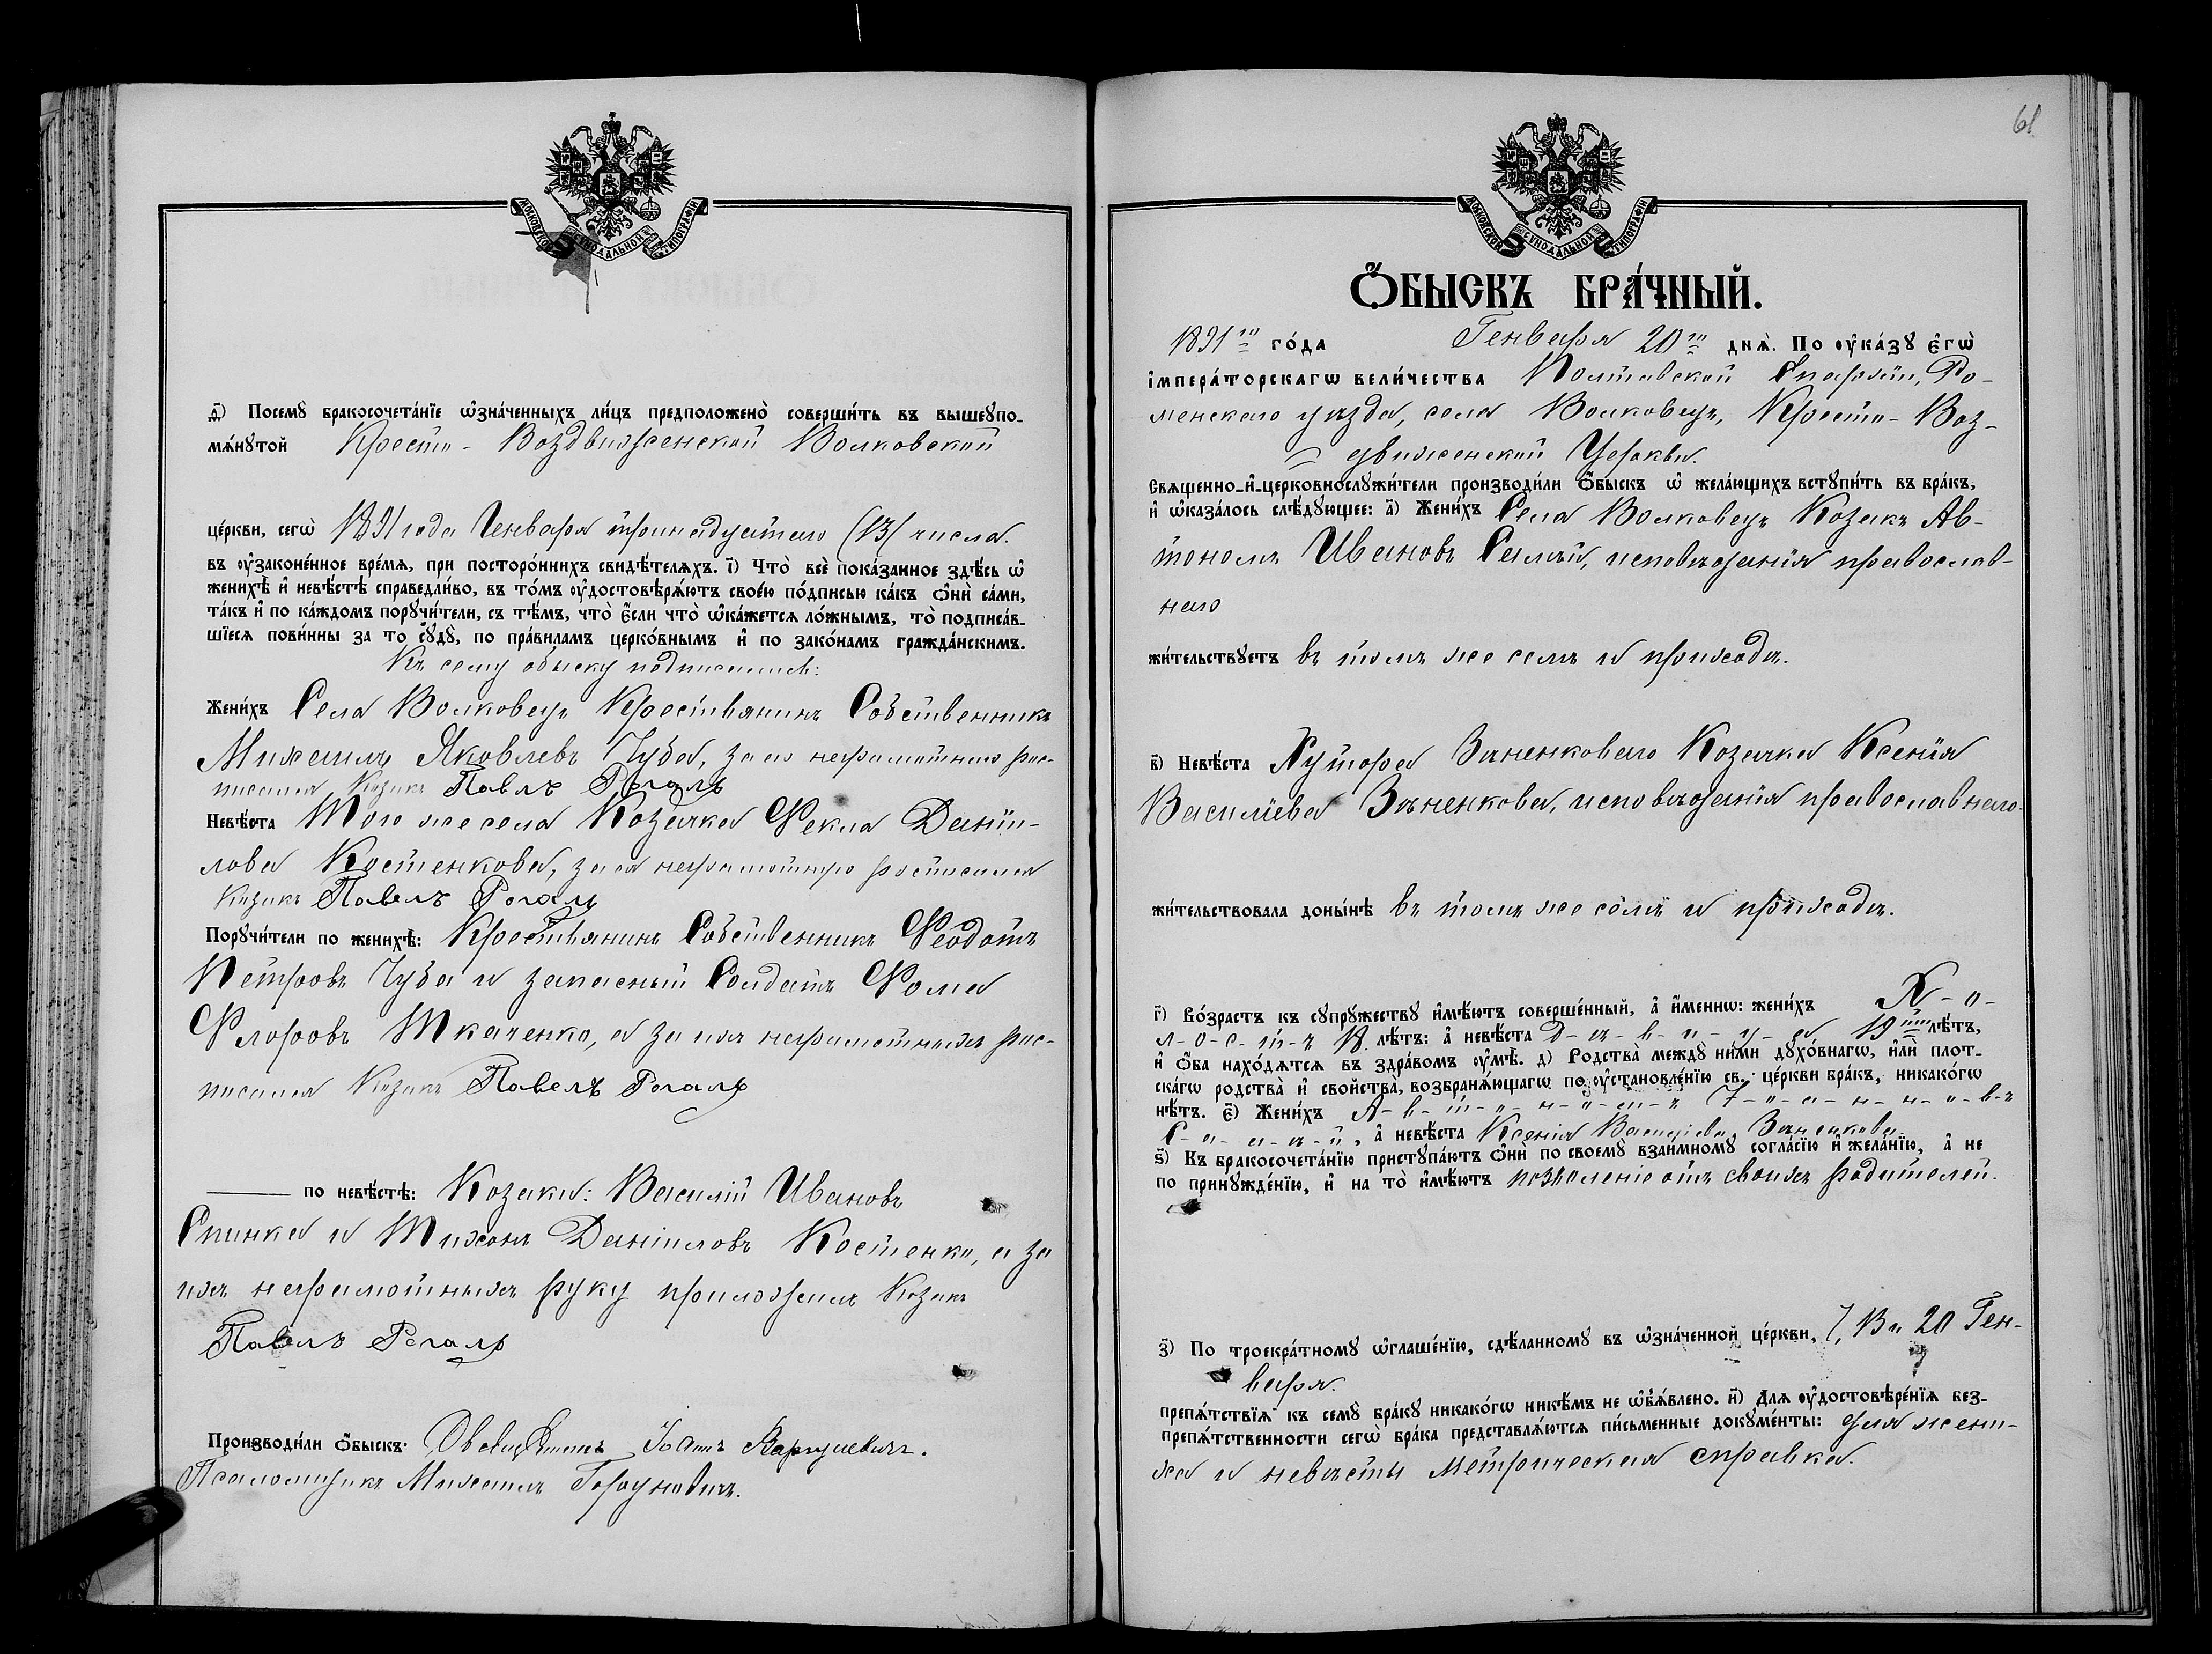 МОСКОВСКОЙ СѴНОДАЛЬНОЙ ТИПОГРАФІИ
д҃і) Посемꙋ̀ бракосочета́нїе ѡ҆зна́ченныхъ ли́цъ предположено̀ соверши́ть въ вышеꙋпо-
мѧ́нꙋтой Кресто-Воздвиженской Волковской
це́ркви, сегѡ̀ 1891 года Генваря тринадцатаго (13) числа.
въ ᲂу҆законе́нное вре́мя, при посторо́ннихъ свидѣ́телѧхъ. і҃) Что̀ всѐ пока́занное здѣ́сь ѡ҆
женихѣ̀ и҆ невѣ́стѣ справедли́во, въ то́мъ ᲂу҆достовѣрѧ́ютъ свое́ю по́дписью ка́къ ѻ҆нѝ са́ми,
та́къ и҆ по ка́ждомъ порꙋчи́тели, съ тѣ́мъ, что̀ є҆́сли что̀ ѡ҆ка́жется ло́жнымъ, то̀ подписа́в-
шїеся пови́нны за то сꙋдꙋ̀, по пра́виламъ церко́внымъ и҆ по зако́намъ гражда́нскимъ.
Къ сему обыску подписались:
Жени́хъ Села Волковецъ Крестьянинъ Собственникъ
Михаилъ Яковлевъ Чуба, за его неграмотнаго рос-
писался Козакъ Павелъ Рогаль
Невѣ́ста Того же села Козачка Фекла Даніи-
лова Костенкова, за ея неграмотную росписался
Козакъ Павелъ Рогаль
Порꙋчи́тели по женихѣ̀: Крестьянинъ Собственникъ Феодотъ
Петровъ Чуба и запасный Солдатъ Фома
Флоровъ Ткаченко, а за ихъ неграмотныхъ рос-
писался Козакъ Павелъ Рогаль
по невѣ́стѣ: Козаки: Василій Ивановъ
Спинка и Тихонъ Даніиловъ Костенко, а за
ихъ неграмотныхъ руку приложилъ Козакъ
Павелъ Рогаль
Производи́ли ѻ҆́быскъ: Іоаннъ
Псаломщикъ Михаилъ
61
МОСКОВСКОЙ СѴНОДАЛЬНОЙ ТИПОГРАФІИ
Ѻ҆́БЫСКЪ БРА́ЧНЫЙ.
1891го го́да Генваря 20го днѧ̀. По ᲂу҆ка́зꙋ є҆гѡ̀
і҆мпера́торскагѡ вели́чества Полтавской Епархіи, Ро-
менскаго уѣзда, села Волковецъ, Кресто-Воз-
движенской Церкви.
Свѧщенно-и҆-церковнослꙋжи́тели производи́ли ѻ҆́быскъ ѡ҆ жела́ющихъ встꙋпи́ть въ бра́къ,
и҆ ѡ҆каза́лось слѣ́дꙋющее: а҃) Жени́хъ Села Волковецъ Козакъ Ав-
тономъ Ивановъ Самый, исповѣданія православ-
наго
жи́тельствꙋетъ въ томъ же селѣ и приходѣ.
в҃) Невѣ́ста Хутора Зѣненковаго Козачка Ксенія
Василіева Зѣненкова, исповѣданія православнаго.
жи́тельствовала доны́нѣ въ томъ же селѣ и приходѣ.
г҃) Во́зрастъ къ сꙋпрꙋ́жествꙋ и҆мѣ́ютъ соверше́нный, а҆ и҆́меннѡ: жени́хъ Х-о-
л-о-с-т-ъ 18 лѣ́тъ: а҆ невѣ́ста д-ѣ-в-и-ц-а 19ти лѣ́тъ,
и҆ ѻ҆́ба нахо́дѧтся въ здра́вомъ ᲂу҆мѣ̀. д҃) Родства̀ междꙋ̀ ни́ми дꙋхо́внагѡ, и҆лѝ плот-
ска́гѡ родства̀ и҆ сво́йства̀, возбранѧ́ющагѡ по ᲂу҆становле́нїю св. це́ркви бра́къ, никако́гѡ
нѣ́тъ. є҃) Жени́хъ А-в-т-о-н-о-м-ъ І-о-а-н-н-о-в-ъ
С-а-м-ы-й, а҆ невѣ́ста Ксенія Василіева Зѣненкова.
ѕ҃) Къ бракосочета́нїю пристꙋпа́ютъ ѻ҆нѝ по своемꙋ̀ взаи́мномꙋ согла́сїю и҆ жела́нїю, а҆ не
по принꙋжде́нїю, и҆ на то̀ и҆мѣ́ютъ позволеніе отъ своихъ родителей.
з҃) По троекра́тномꙋ ѡ҆глаше́нїю, сдѣ́ланномꙋ въ ѡ҆зна́ченной це́ркви, 7, 13 и 20 Ген-
варя.
препѧ́тствїя къ семꙋ̀ бра́кꙋ никако́гѡ никѣ́мъ не ѡ҆бъѧ́влено. и҃) Для ᲂу҆достовѣре́нїя без-
препѧ́тственности сегѡ̀ бра́ка представлѧ́ются пи́сьменные докꙋме́нты: для жени-
ха и невѣсты Метрическая справка.